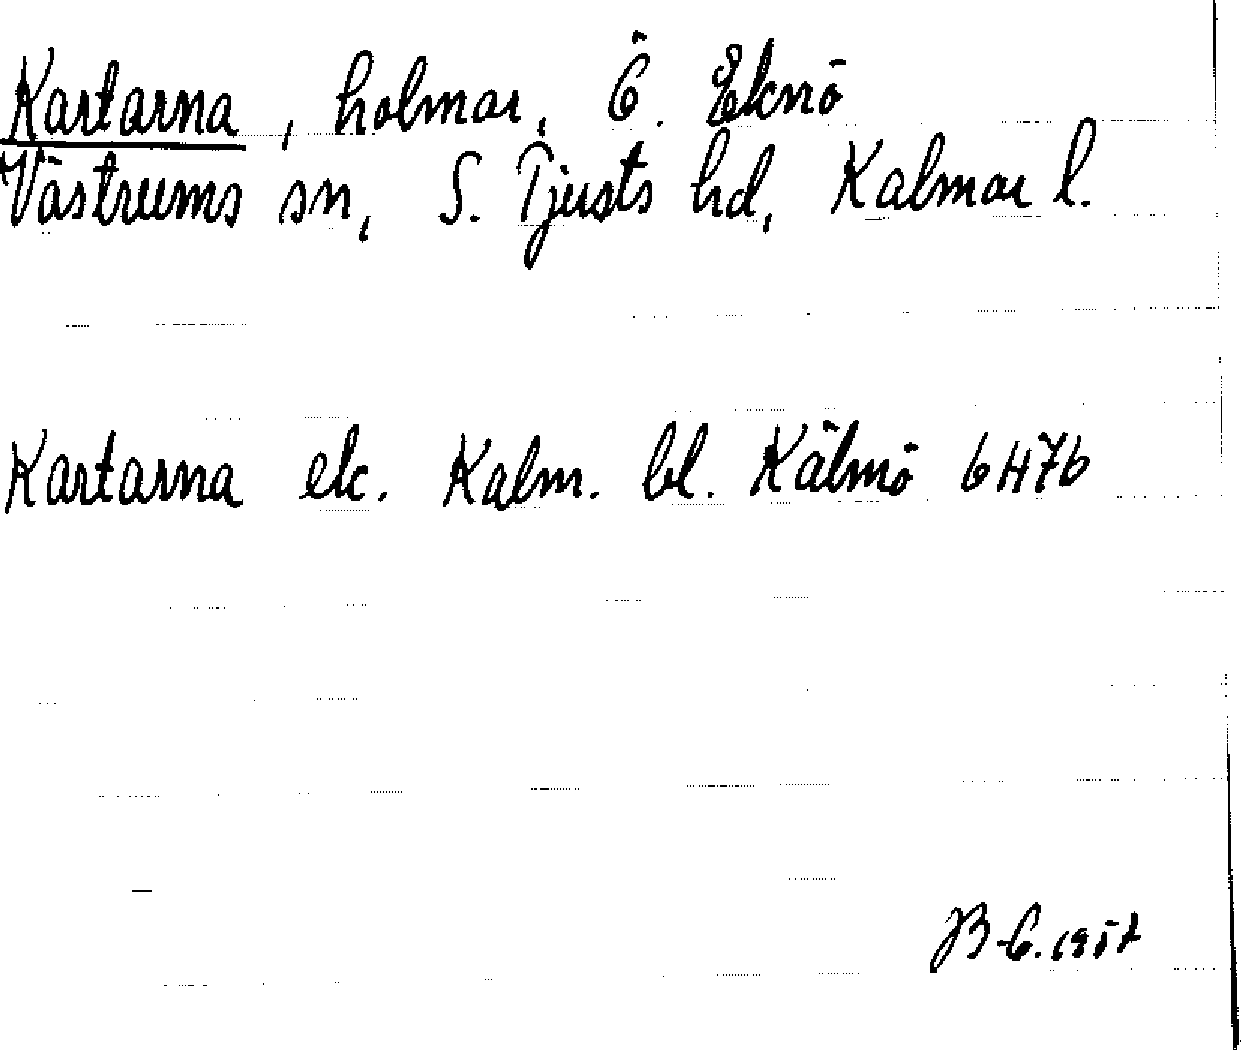 Kartarna, holmar, Ö. Eknö
Västrums sn, S. Tjusts hd, Kalmar l.
Kartarna ek. Kalm. bl. Kälmö 6H7b